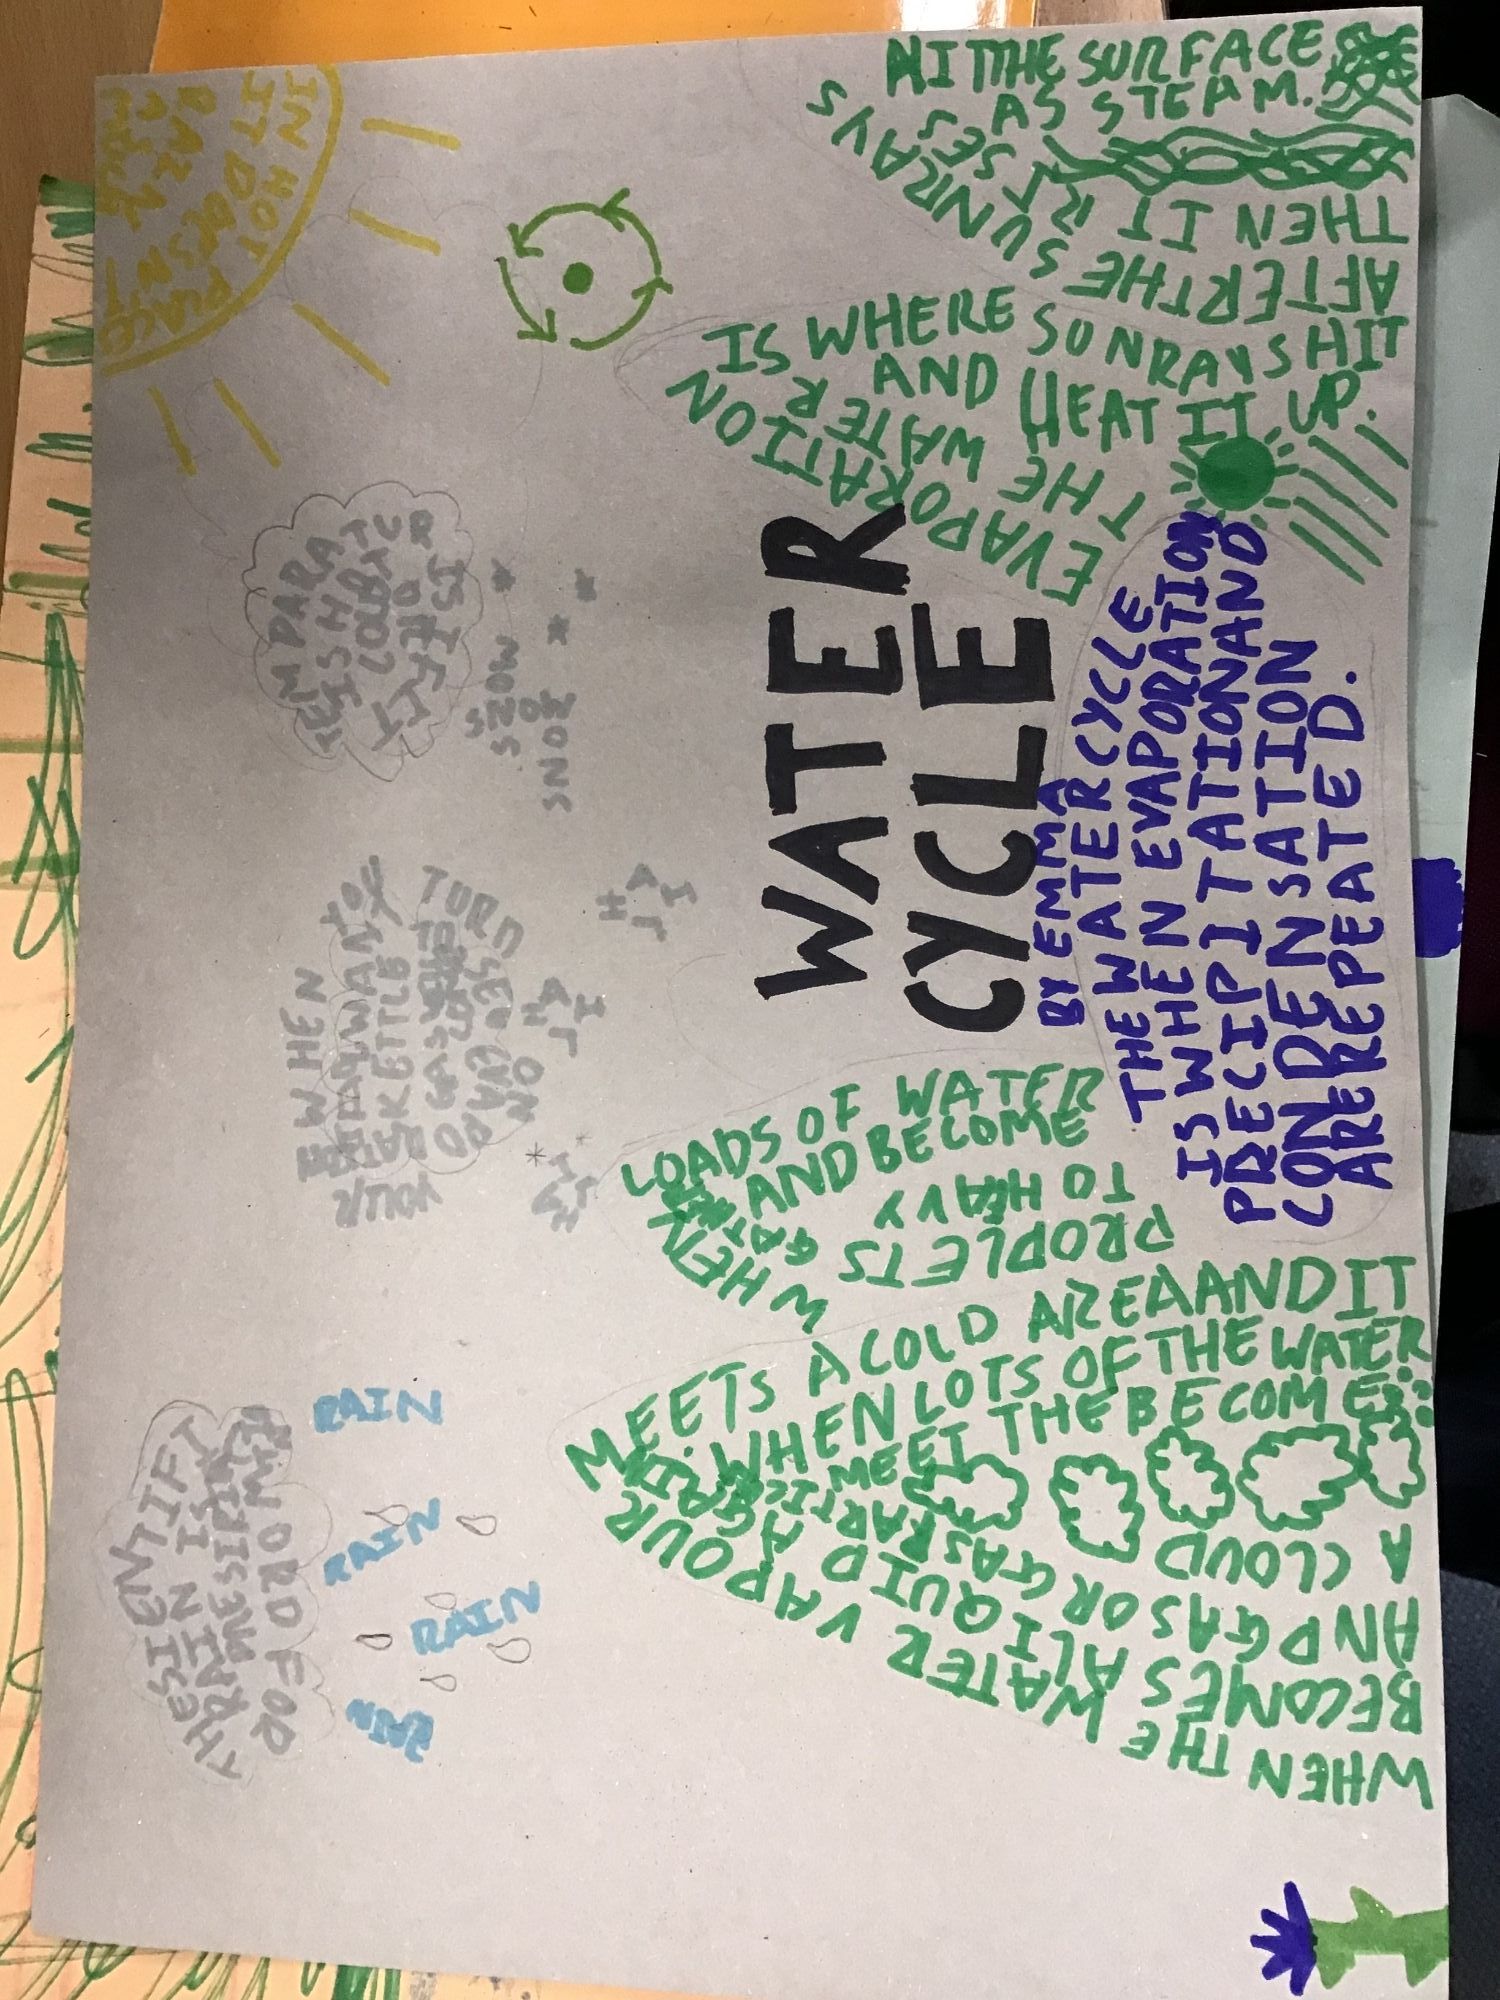 WATER
CYCLE
BY EMMA
THE WATER CYCLE
IS WHEN EVAPORATION
PRECIPITATION AND
CONDENSATION
ARE REPEATED.
EVAPORATION
IS WHERE SUNRAYS HIT
THE WATER
AND HEAT IT UP.
AFTER THE SUNRAYS
HIT THE SURFACE
THEN IT RISES
AS STEAM.
WHEN THE WATER VAPOUR
MEETS A COLD AREA AND IT
BECOMES A LIQUID AGAIN.
WHEN LOTS OF THE WATER
AND GAS OR GAS PARTIC
MEET THE BECOME
A CLOUD
WHEN
LOADS OF WATER
PROPLETS GATHER AND BECOME
TO HEAVY
IN HOT PLACE
IT DOESN'T
TEMPARATUR
IS
SNOW
SNOW
SNOW
WHEN YOU
WANT
YOUR KETTLE
TURN
ON
HAIL
HAIL
HAIL
THE SIENTIFI
RAIN IN
WORD FOR
RAIN
RAIN
RAIN
RAIN